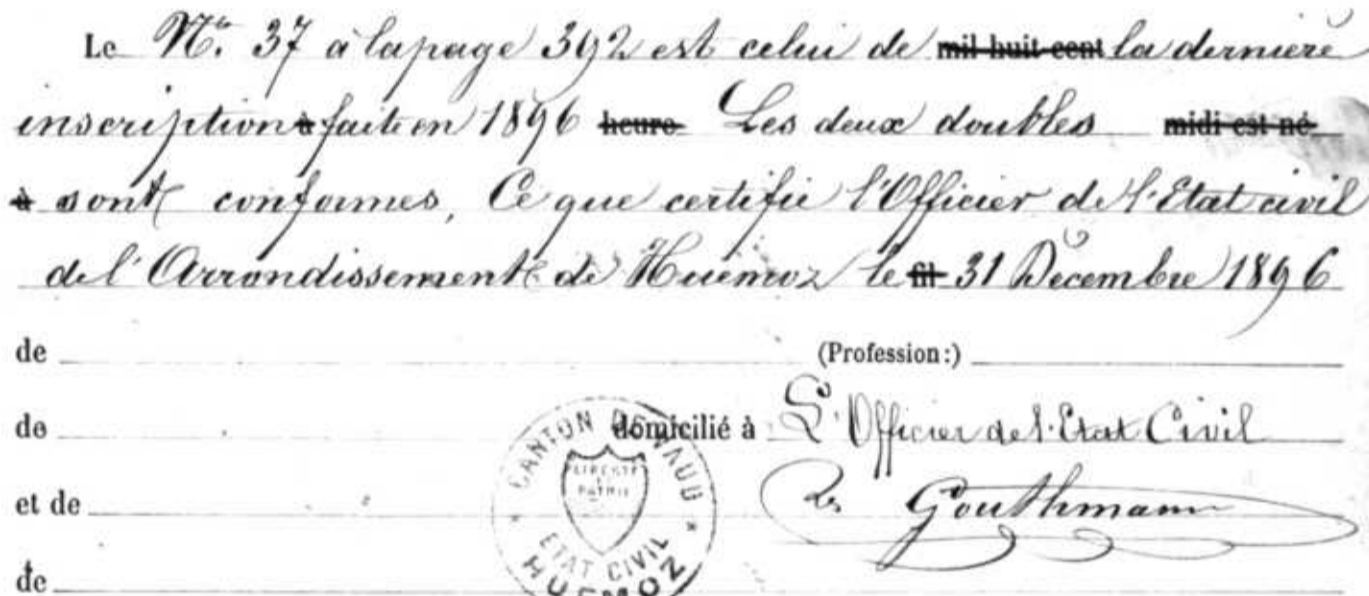 Le No. 37 à la page 392 est celui de mil huit cent la dernière
inscription à faite en 1896 heure Les deux doubles midi est né
à sont conformes, Ce que certifie l'Officier de l'Etat civil
de l'Arrondissement de Huémoz le fil 31 Décembre 1896
de (Profession:)
de domicilié à L'Officier de l'Etat Civil
et de Gouthmann
de
CANTON DE VAUD
LIBERTÉ ET PATRIE
ETAT CIVIL
HUÉMOZ